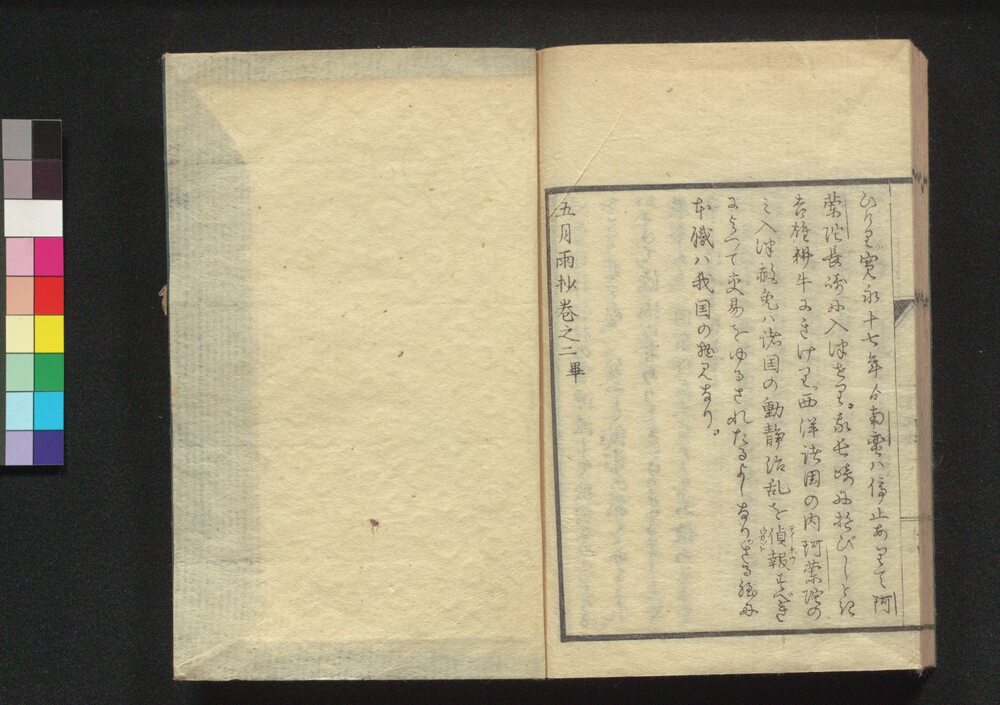 ひけり寛永十七年より南蛮ハ停止ありて阿
蘭陀長崎に入津せり。永長崎に遊びしときに
吉雄耕牛にきけり、西洋諸国の内阿蘭陀の
ミ入津赦免ハ諸国の動静治乱を偵報すべき
によつて交易をゆるされたるよしなり。さる程に
本職ハ我国の物見なり。
五月雨抄巻之二畢